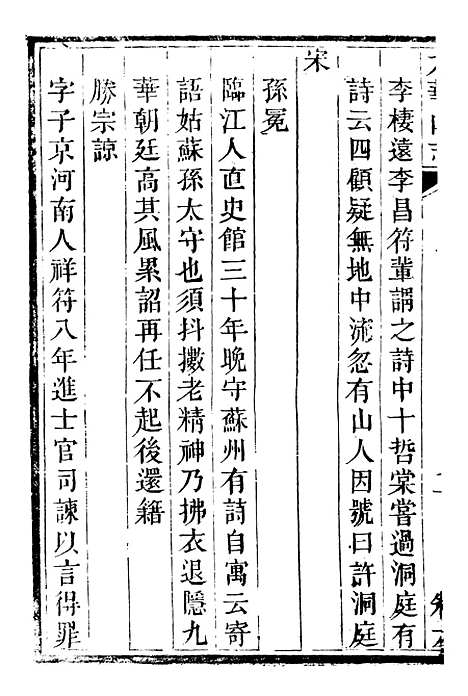 李棲遠李昌符輩謂之詩中十哲棠嘗過洞庭有
詩云四顧疑無地中流忽有山人因號曰許洞庭
宋
孫冕
臨江人直史館三十年晚守蘇州有詩自寓云寄
語姑蘇孫太守也須抖擻老精神乃拂衣退隱九
華朝廷高其風累詔再任不起後還籍
滕宗諒
字子京河南人祥符八年進士官司諫以言得罪